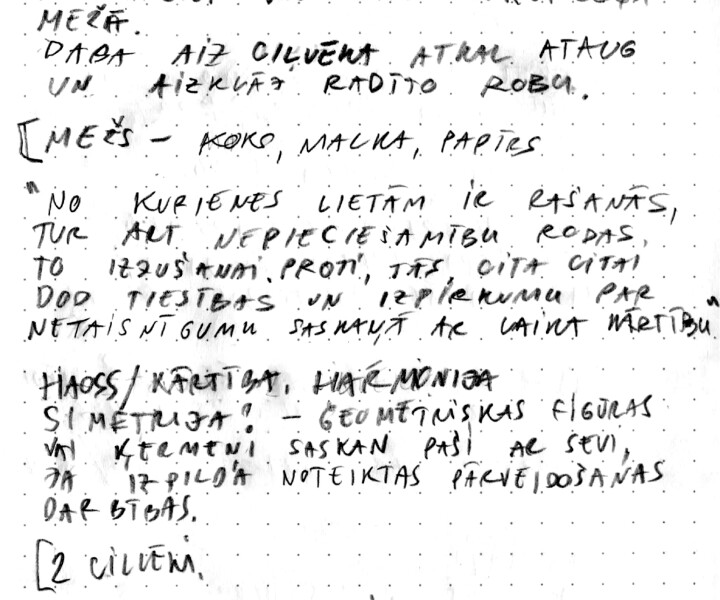 MEŽĀ.
DABA AIZ CILVĒKA ATKAL ATAUG
UN AIZKLĀJ RADĪTO ROBU.
[MEŽS – KOKS, MALKA, PAPĪRS
"NO KURIENES LIETĀM IR RAŠANĀS,
TUR ARĪ NEPIECIEŠAMĪBU RODAS
TO IZZUŠANAI. PROTI, TĀS CITA CITAI
DOD TIESĪBAS UN IZPIRKUMU PAR
NETAISNĪGUMU SASKAŅĀ AR LAIKA KĀRTĪBU"
HAOSS/KĀRTĪBA. HARMONIJA
SIMETRIJA? – ĢEOMETRISKAS FIGŪRAS
VAI ĶERMEŅI SASKAN PAŠI AR SEVI,
JA IZPILDA NOTEIKTAS PĀRVEIDOŠANAS
DARBĪBAS.
[2 CILVĒKI.